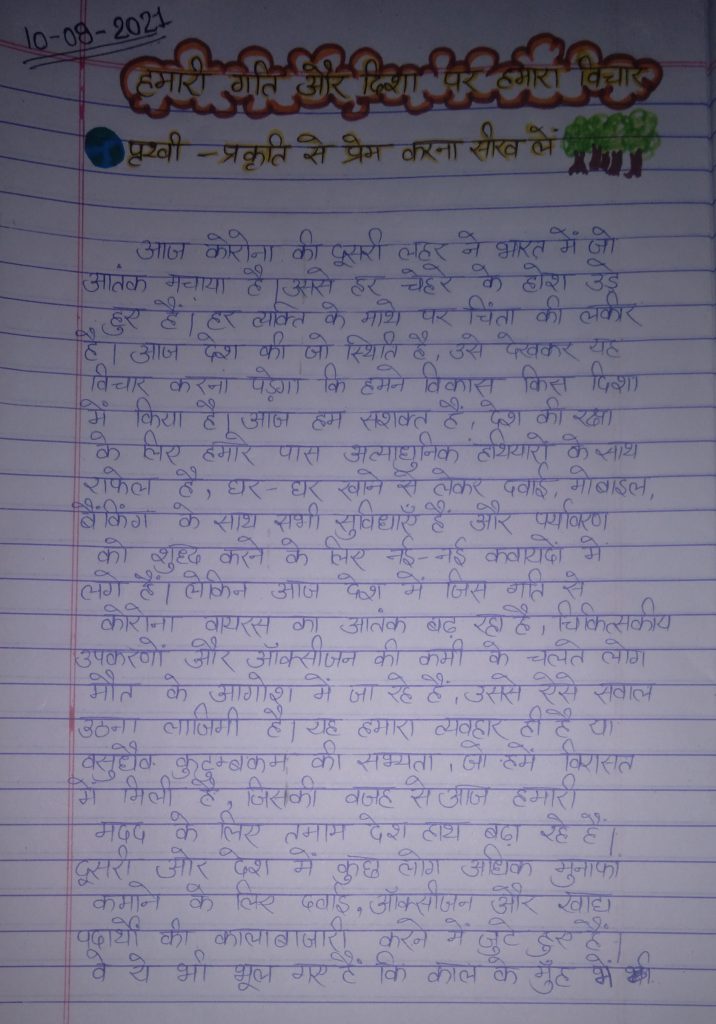 10-08-2021
हमारी गति और दिशा पर हमारा विचार
पृथ्वी - प्रकृति से प्रेम करना सीख लें
आज कोरोना की दूसरी लहर ने भारत में जो
आतंक मचाया है। उससे हर चेहरे के होश उड़े
हुए हैं। हर व्यक्ति के माथे पर चिंता की लकीर
है। आज देश की जो स्थिति है, उसे देखकर यह
विचार करना पड़ेगा कि हमने विकास किस दिशा
में किया है। आज हम सशक्त हैं, देश की रक्षा
के लिए हमारे पास अत्याधुनिक हथियारों के साथ
राफेल है, घर-घर खाने से लेकर दवाई, मोबाइल,
बैंकिंग के साथ सभी सुविधाएँ हैं और पर्यावरण
को शुध्दि करने के लिए नई-नई कवायदों में
लगे हैं। लेकिन आज देश में जिस गति से
कोरोना वायरस का आतंक बढ़ रहा है, चिकित्सकीय
उपकरणों और ऑक्सीजन की कमी के चलते लोग
मौत के आगोश में जा रहे हैं, उससे ऐसे सवाल
उठना लाजिमी है। यह हमारा व्यवहार ही है या
वसुधैव कुटुम्बकम की सभ्यता, जो हमें विरासत
में मिली है, जिसकी वजह से आज हमारी
मदद के लिए तमाम देश हाथ बढ़ा रहे हैं।
दूसरी ओर देश में कुछ लोग अधिक मुनाफा
कमाने के लिए दवाई, ऑक्सीजन और खाद्य
पदार्थों की कालाबाजारी करने में जुटे हुए हैं।
वे ये भी भूल गए हैं कि काल के मुँह में भी